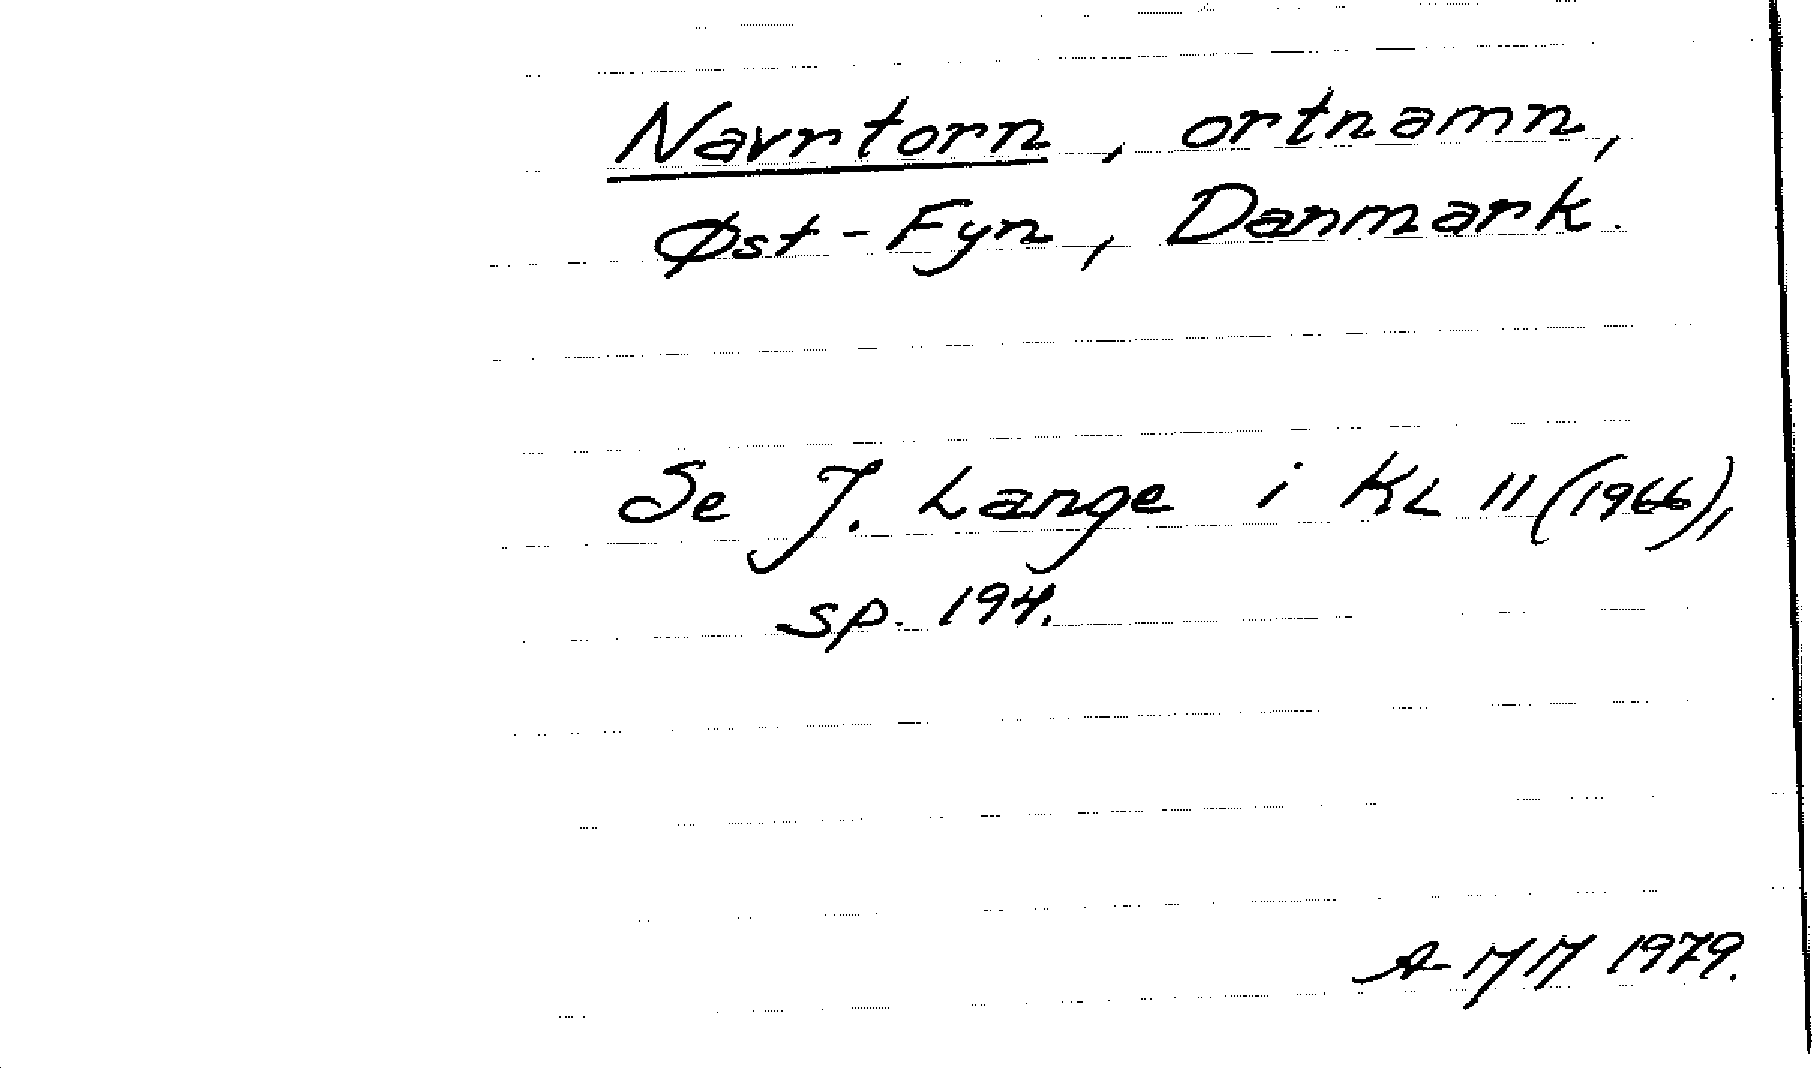 Navrtorn, ortnamn,
Øst-Fyn, Danmark.
Se J. Lange i KL 11 (1966),
sp. 194.
1979.